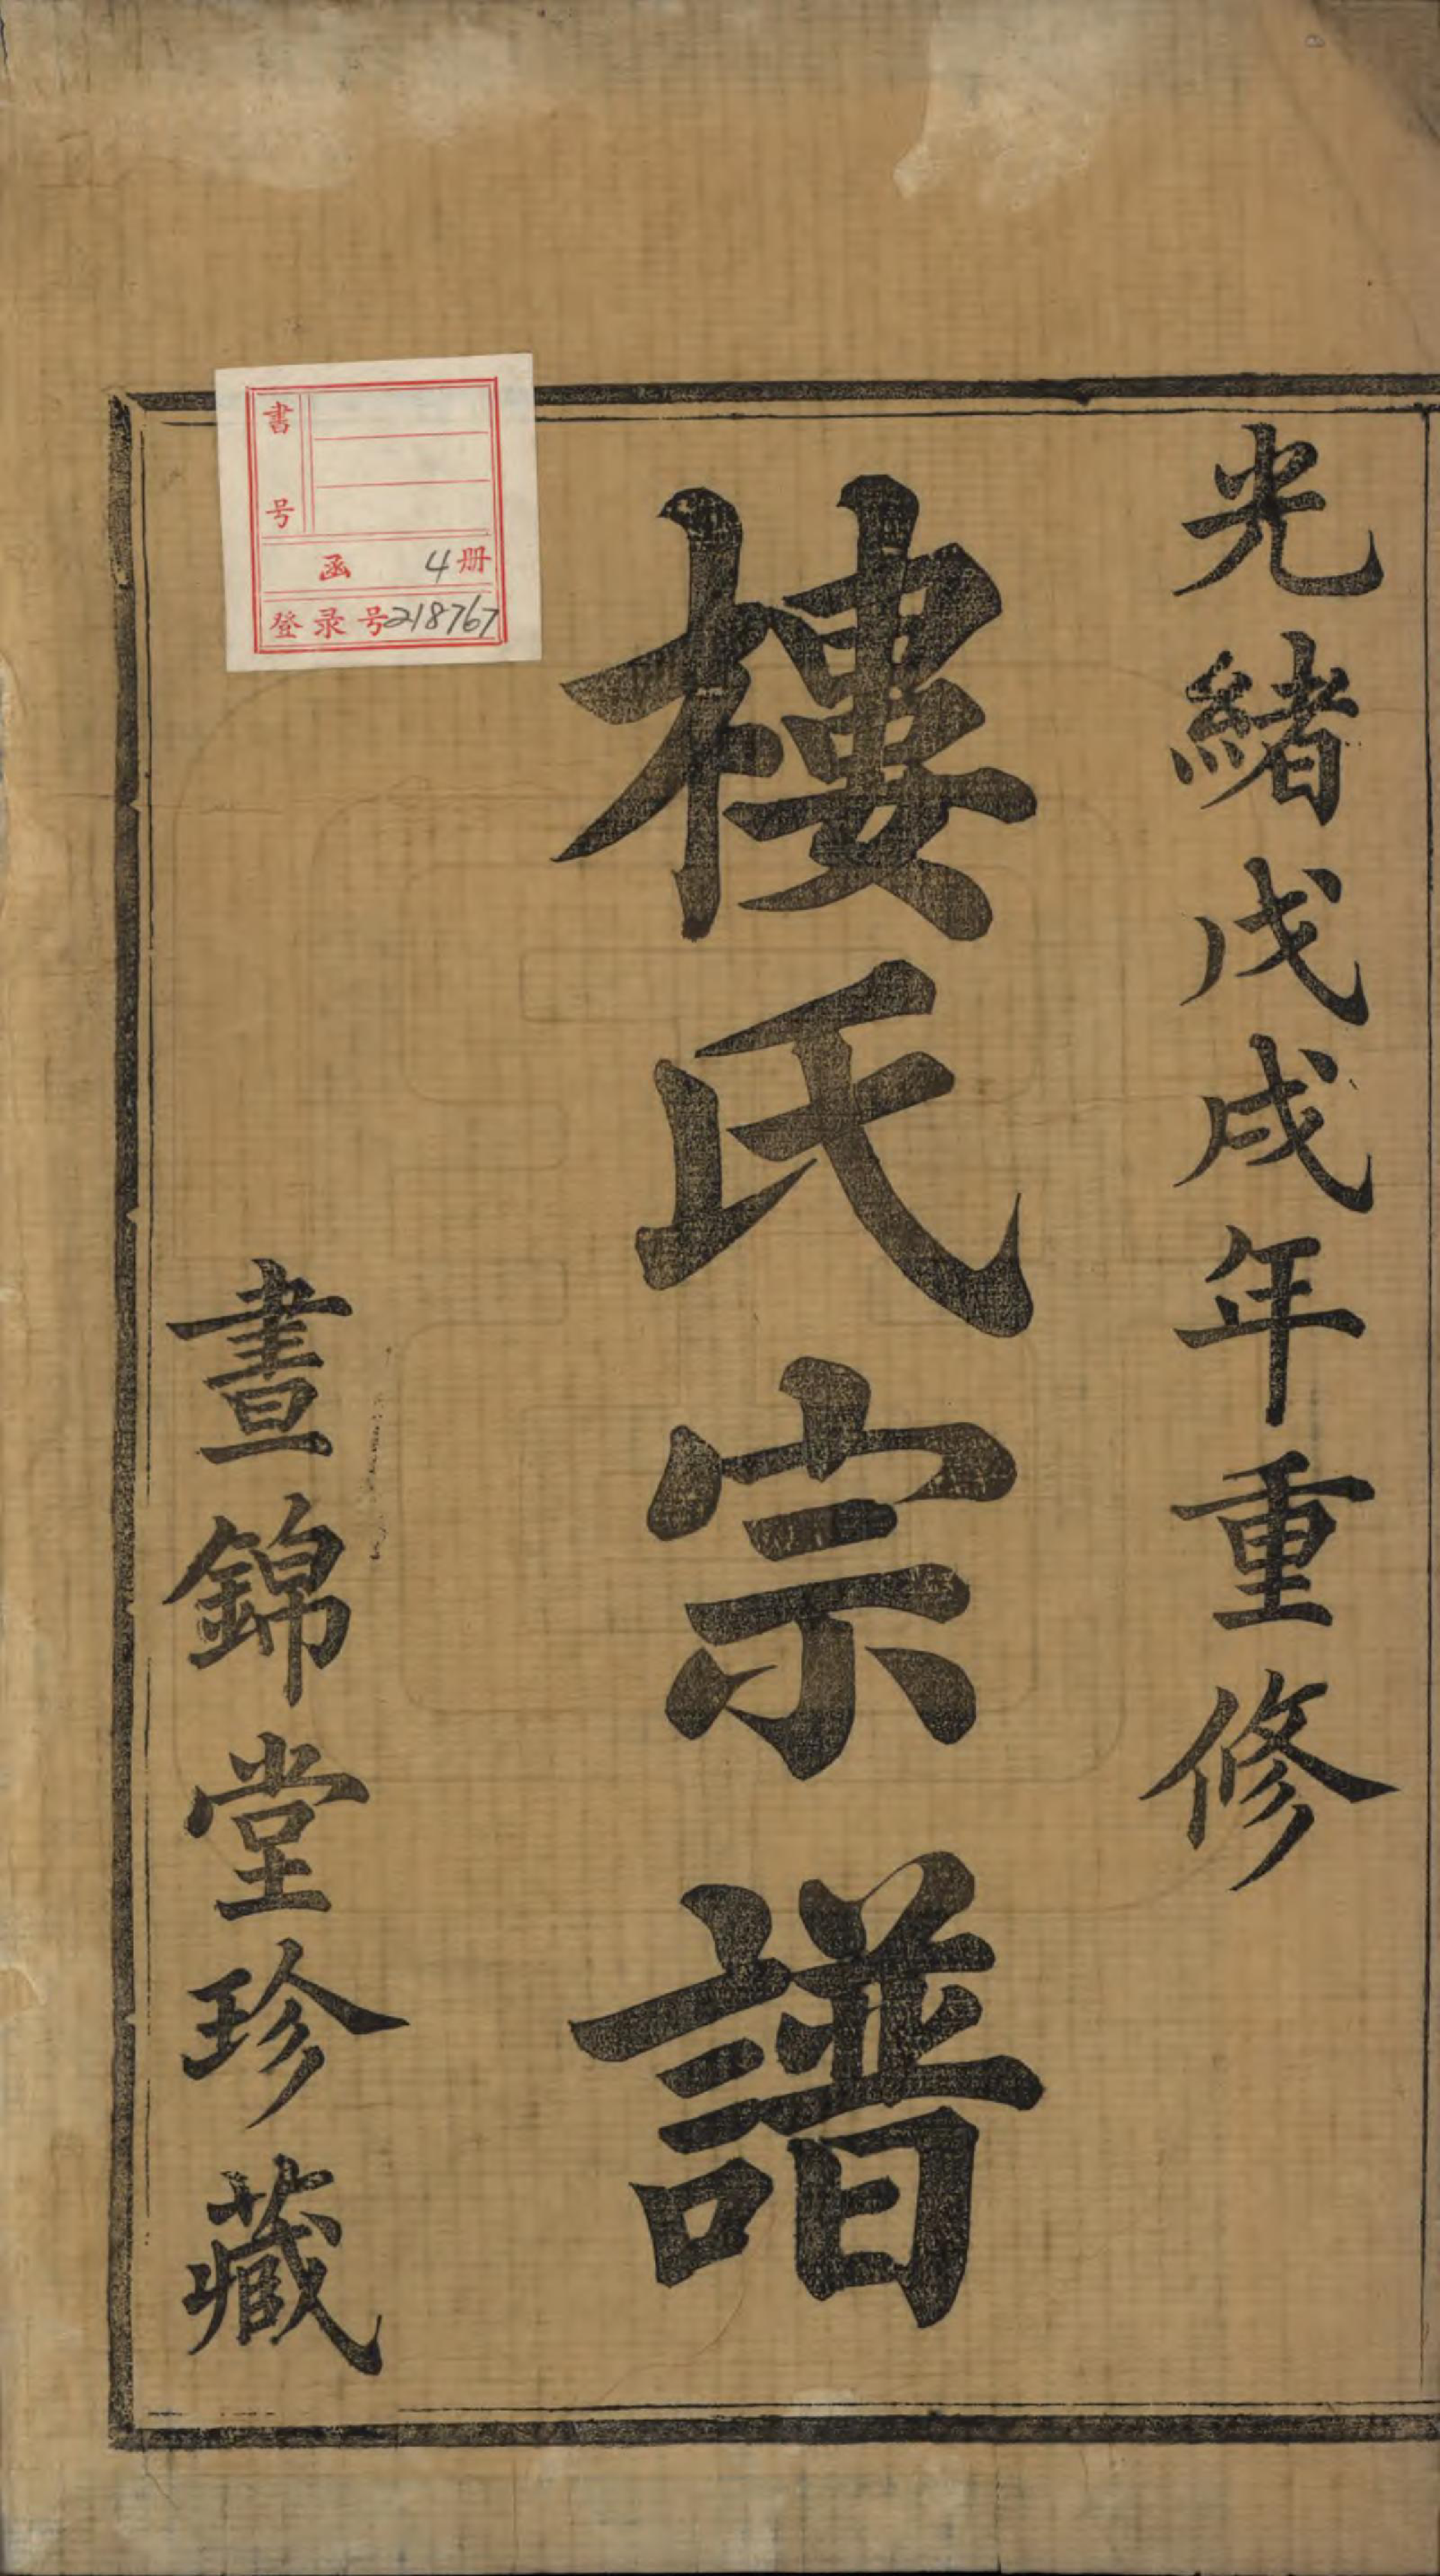 光緒戊戌年重修
樓氏宗譜
晝錦堂珍藏
書号
函 4册
登录号218767